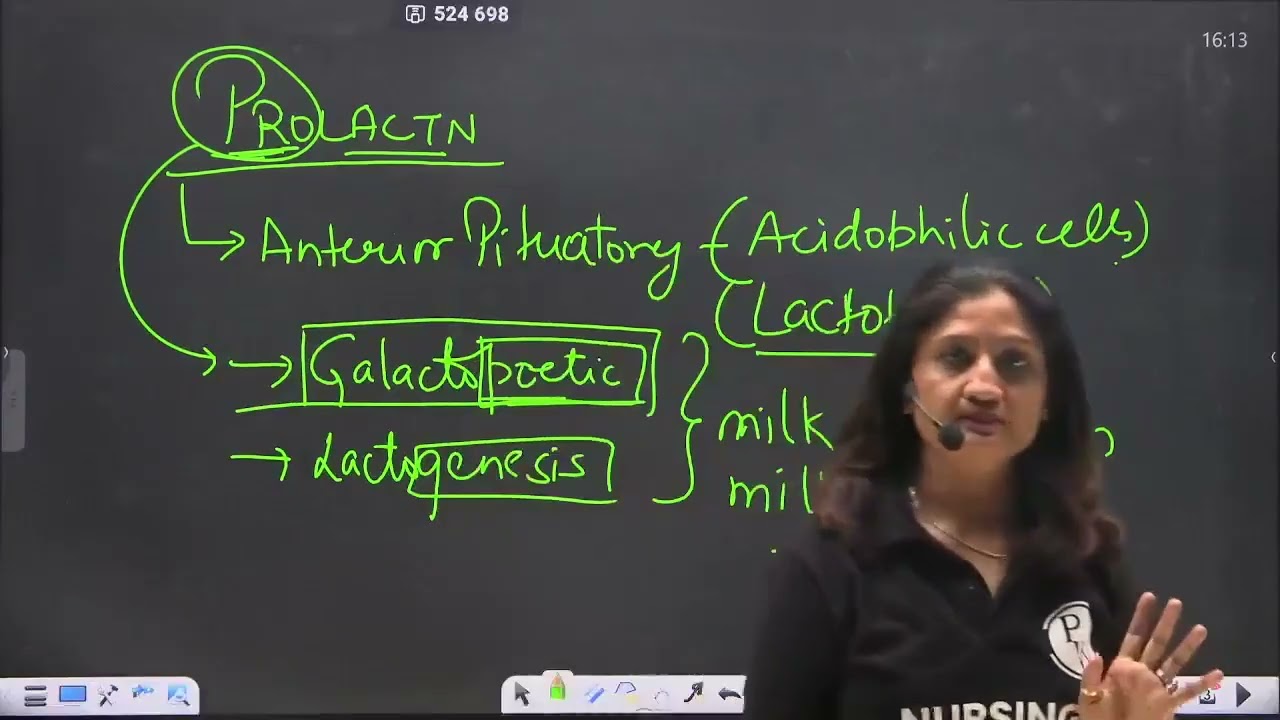 524 698
16:13
PROLACTN
Anterior Pituatory - (Acidobhilic cells)
(Lacto
Galactopoetic
milk
Lactogenesis
mil
P
NURSING